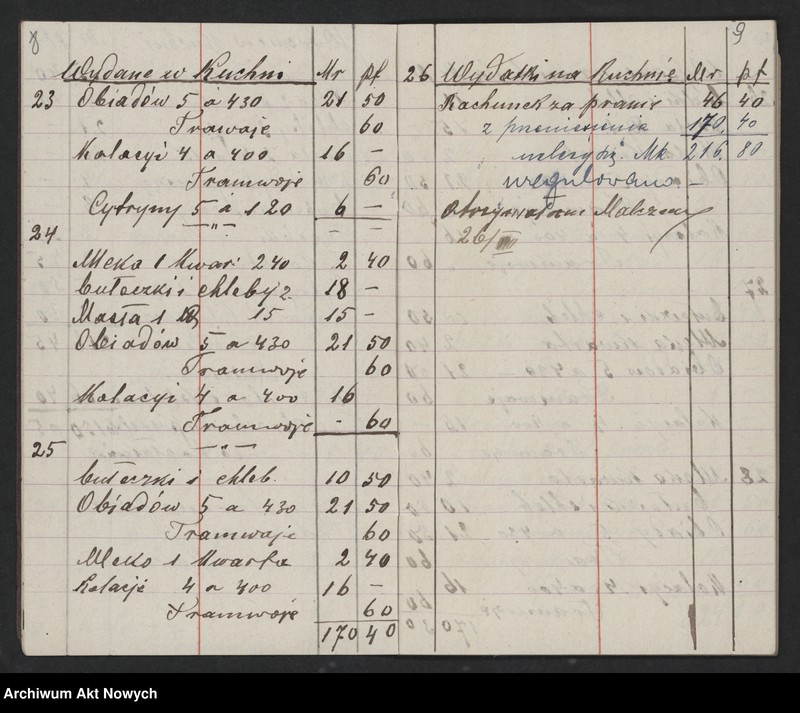 8
Wydane w Kuchni Mr pf
23 Obiadów 5 á 430 21 50
Tramwaje 60
Kolacyi 4 a 400 16 –
Tramwoje 60
Cytryny 5 á 120 6 –
24 – " – – –
Mleka 1 Kwar: 240 2 40
bułeczki i chleby 2. 18 –
Masła 1 15 15 –
Obiadów 5 a 430 21 50
Tramwoje 60
Kolacyi 4 a 400 16
Tramwoje - 60
25 – " –
bułeczki i chleb. 10 50
Obiadów 5 a 430 21 50
Tramwaje 60
Mleko 1 Kwarta 2 40
Kolacje 4 a 400 16 –
Tramwoje 60
170 40
9
26 Wydatki na Kuchnię Mr pf
Rachunek za pranie 46 40
z przeniesienia 170. 40
Mk 216. 80
uregulowano –
26/VIII
Archiwum Akt Nowych